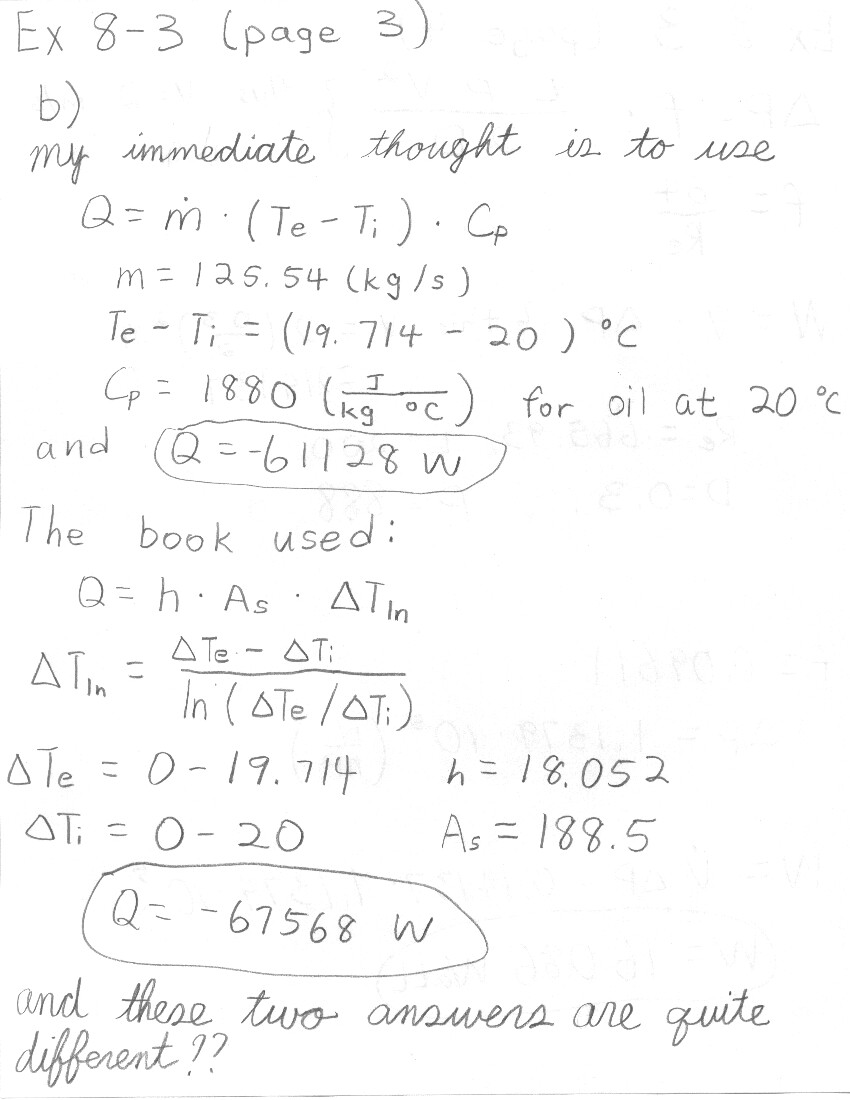 Ex 8-3 (page 3)
b)
my immediate thought is to use
Q = ṁ · (Te - Ti) · Cp
m = 125.54 (kg/s)
Te - Ti = (19.714 - 20) °C
Cp = 1880 (J / kg °C) for oil at 20 °C
and Q = -61128 W
The book used:
Q = h · As · ΔTln
ΔTln = (ΔTe - ΔTi) / ln(ΔTe/ΔTi)
ΔTe = 0 - 19.714 h = 18.052
ΔTi = 0 - 20 As = 188.5
Q = -67568 W
and these two answers are quite
different??